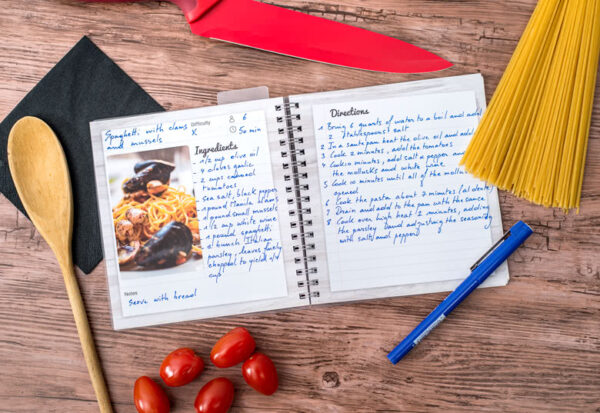 Spaghetti with clams
and mussels
Difficulty
X
6
50 min
Ingredients
- 1/2 cup olive oil
- 4 cloves garlic
- 2 cups canned
tomatoes
- sea salt, black pepper
- 1 pound Manila clams
- 1 pound small mussels
- 1/2 cup white wine
- 1 pound spaghetti
- 1 bunch Italian
parsley, leaves finely
chopped to yield 1/2
cup
Notes
Serve with bread
Directions
1 Bring 6 quarts of water to a boil and add
2 tablespoons salt
2 In a saute pan heat the olive oil and add
3 Cook 2 minutes, add the tomatoes
4 Cook 10 minutes, add salt & pepper and
the mollusks and white wine
5 Cook 10 minutes until all of the mollusks
opened
6 Cook the pasta about 7 minutes (al dente)
7 Drain and add to the pan with the sauce
8 Cook over high heat 2 minutes, adding
the parsley and adjusting the seasoning
with salt and pepper